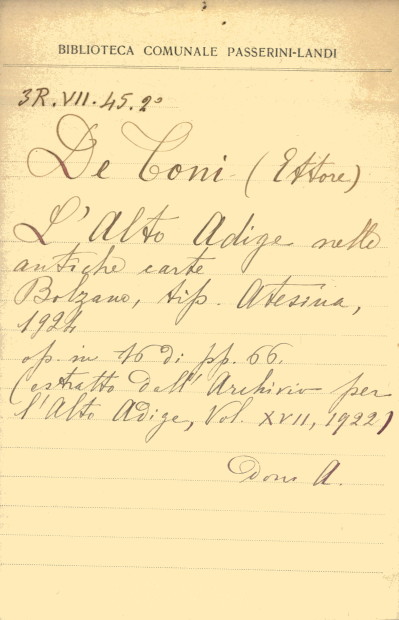 BIBLIOTECA COMUNALE PASSERINI-LANDI
3R.VII.45.2°
De Toni (Ettore)
L'Alto Adige nelle
antiche carte
Bolzano, tip. Atesina,
1924
op. in 16 di pp. 66.
(estratto dall'Archivio per
l'Alto Adige, Vol. XVII, 1922)
Dono A.